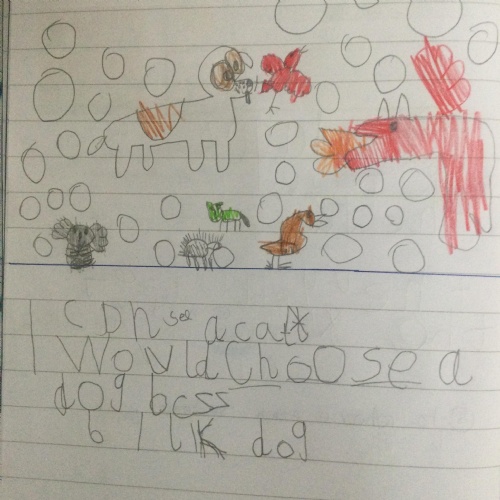 I can see a cat
I Would Choose a
dog bcss
b I lIK dog